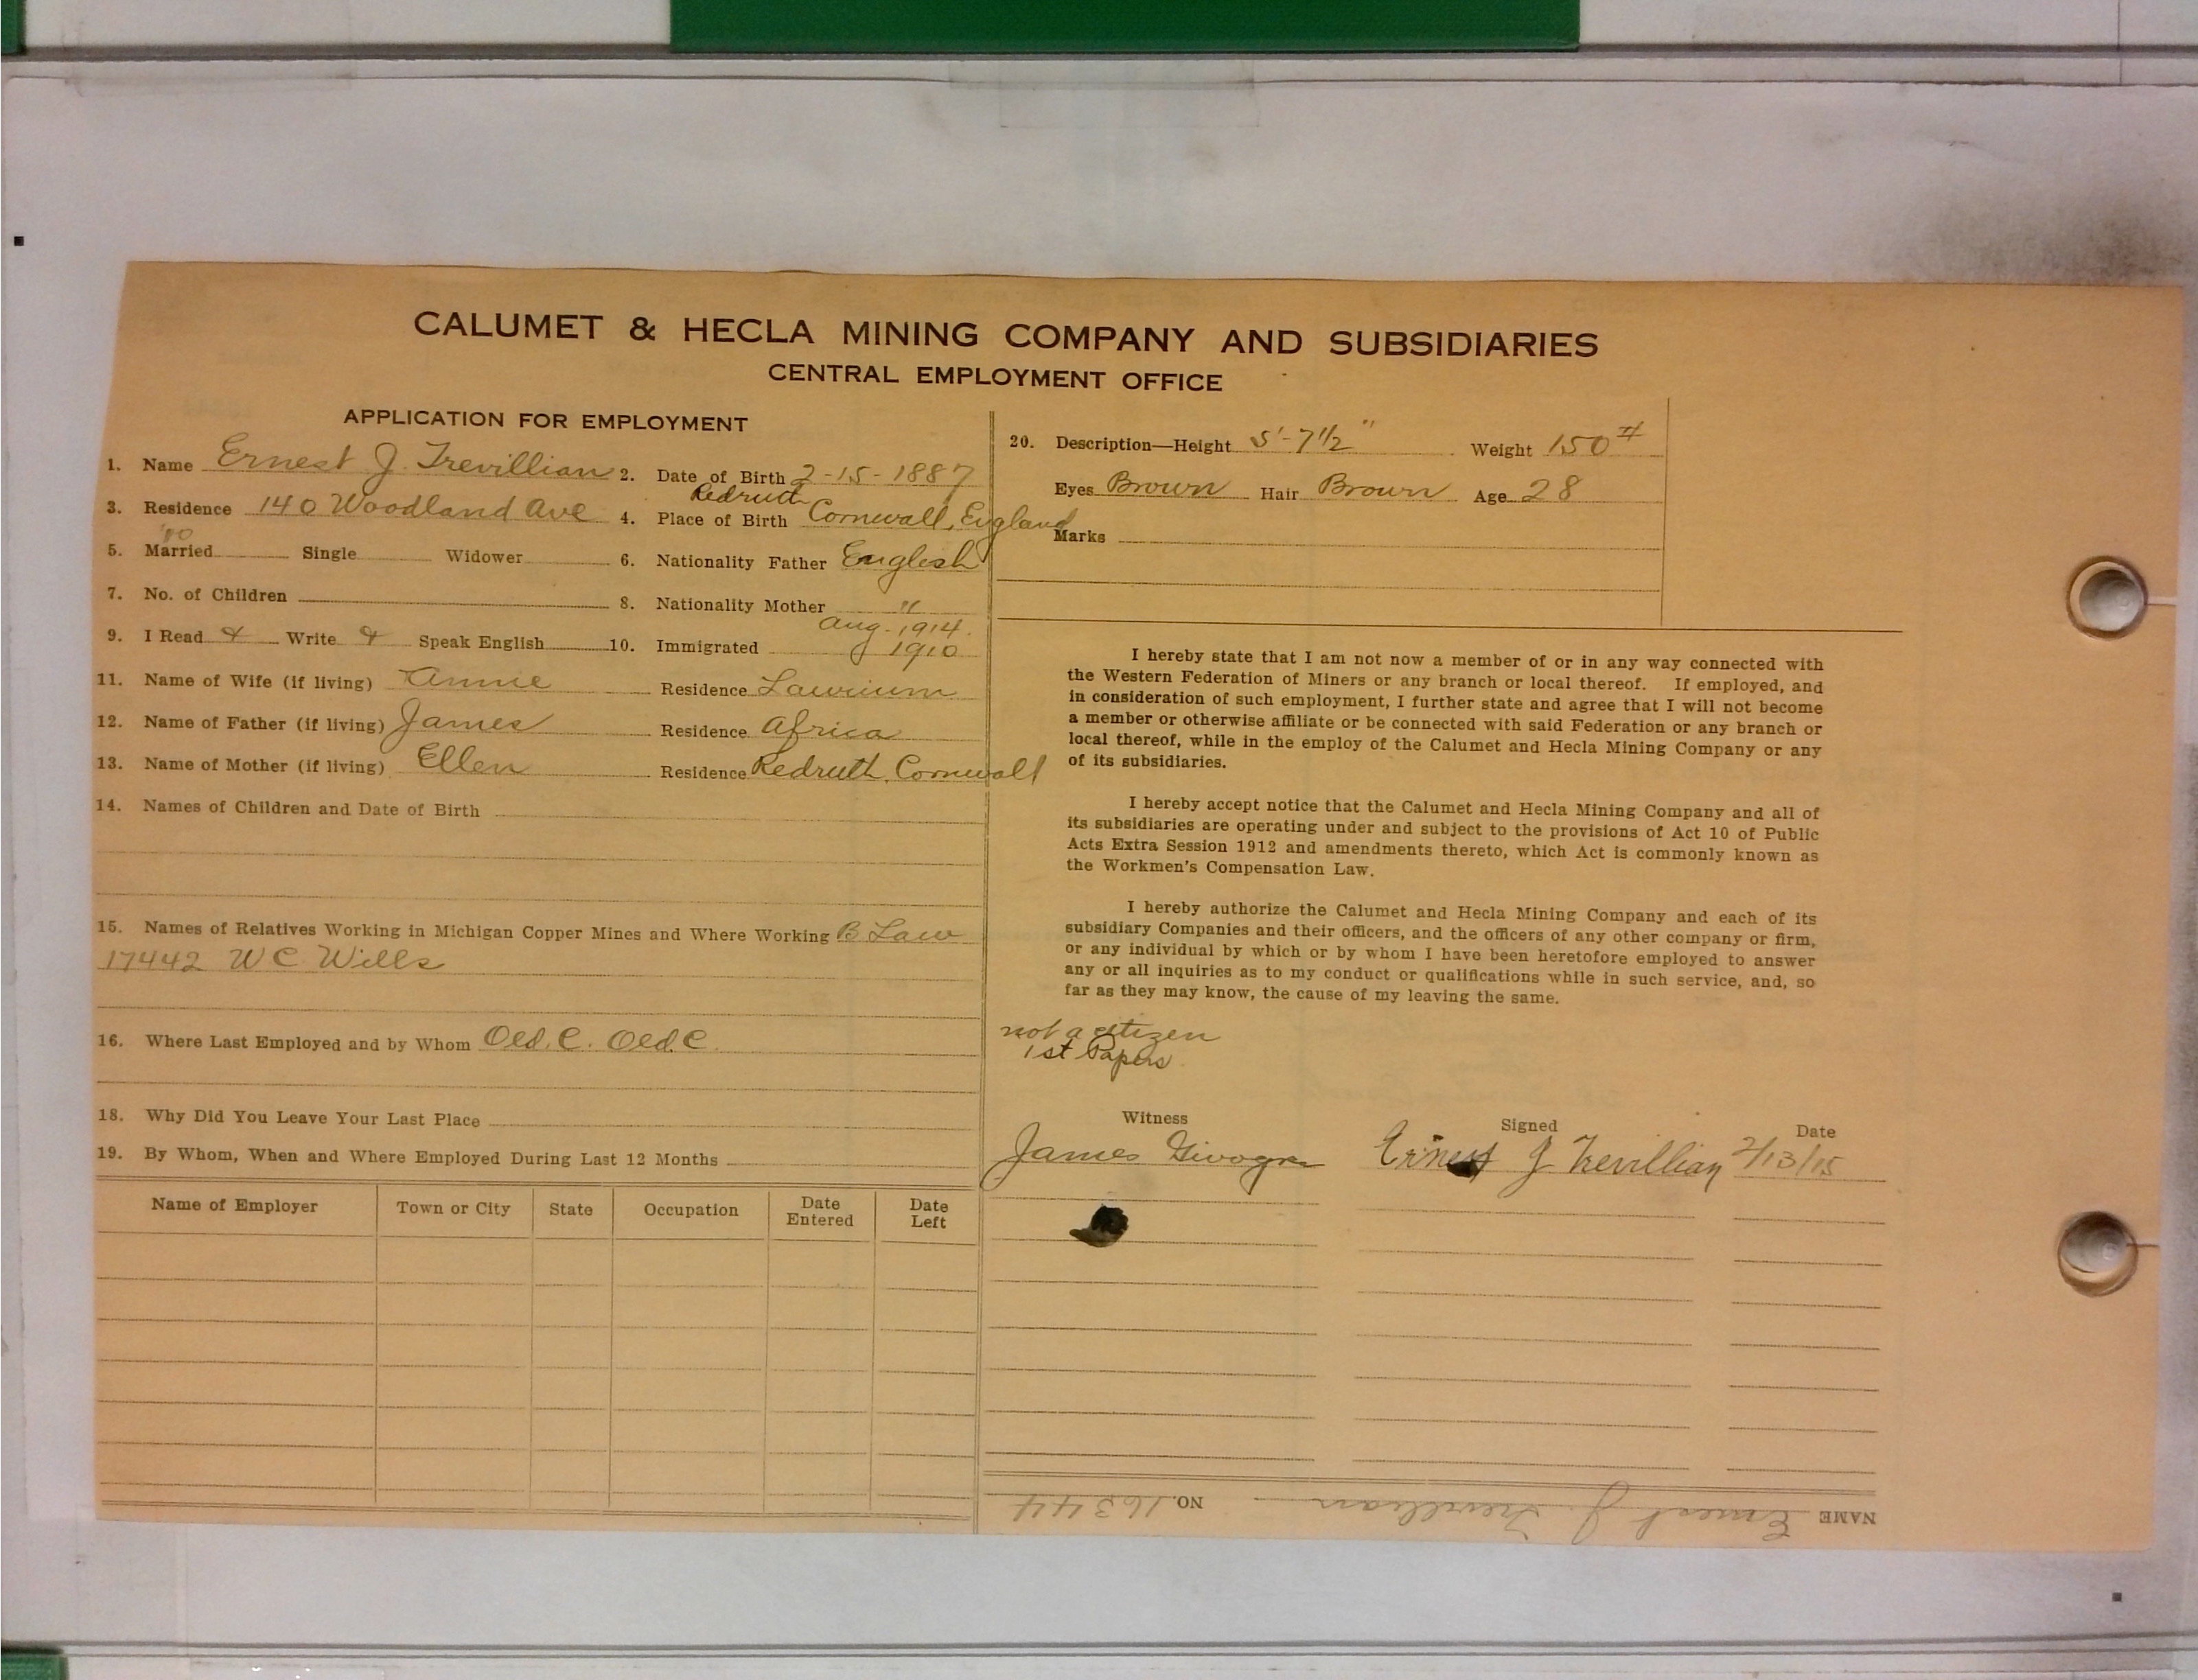 CALUMET & HECLA MINING COMPANY AND SUBSIDIARIES
CENTRAL EMPLOYMENT OFFICE
APPLICATION FOR EMPLOYMENT
1. Name Ernest J. Trevillian 2. Date of Birth 2-15-1887
3. Residence 140 Woodland Ave 4. Place of Birth Redruth Cornwall, England
5. Married '10 Single Widower 6. Nationality Father English
7. No. of Children 8. Nationality Mother "
9. I Read & Write & Speak English 10. Immigrated Aug. 1914. 1910
11. Name of Wife (if living) Annie Residence Laurium
12. Name of Father (if living) James Residence Africa
13. Name of Mother (if living) Ellen Residence Redruth, Cornwall
14. Names of Children and Date of Birth
15. Names of Relatives Working in Michigan Copper Mines and Where Working B Law
17442 W C Wills
16. Where Last Employed and by Whom Old. C. Old. C.
18. Why Did You Leave Your Last Place
19. By Whom, When and Where Employed During Last 12 Months
Name of Employer Town or City State Occupation Date Entered Date Left
20. Description—Height 5'-7½" Weight 150#
Eyes Brown Hair Brown Age 28
Marks
I hereby state that I am not now a member of or in any way connected with
the Western Federation of Miners or any branch or local thereof. If employed, and
in consideration of such employment, I further state and agree that I will not become
a member or otherwise affiliate or be connected with said Federation or any branch or
local thereof, while in the employ of the Calumet and Hecla Mining Company or any
of its subsidiaries.
I hereby accept notice that the Calumet and Hecla Mining Company and all of
its subsidiaries are operating under and subject to the provisions of Act 10 of Public
Acts Extra Session 1912 and amendments thereto, which Act is commonly known as
the Workmen's Compensation Law.
I hereby authorize the Calumet and Hecla Mining Company and each of its
subsidiary Companies and their officers, and the officers of any other company or firm,
or any individual by which or by whom I have been heretofore employed to answer
any or all inquiries as to my conduct or qualifications while in such service, and, so
far as they may know, the cause of my leaving the same.
not a citizen
1st Papers
Witness Signed Date
James Ernest J Trevillian 2/13/15
NAME Ernest J. Trevillian NO. 16344